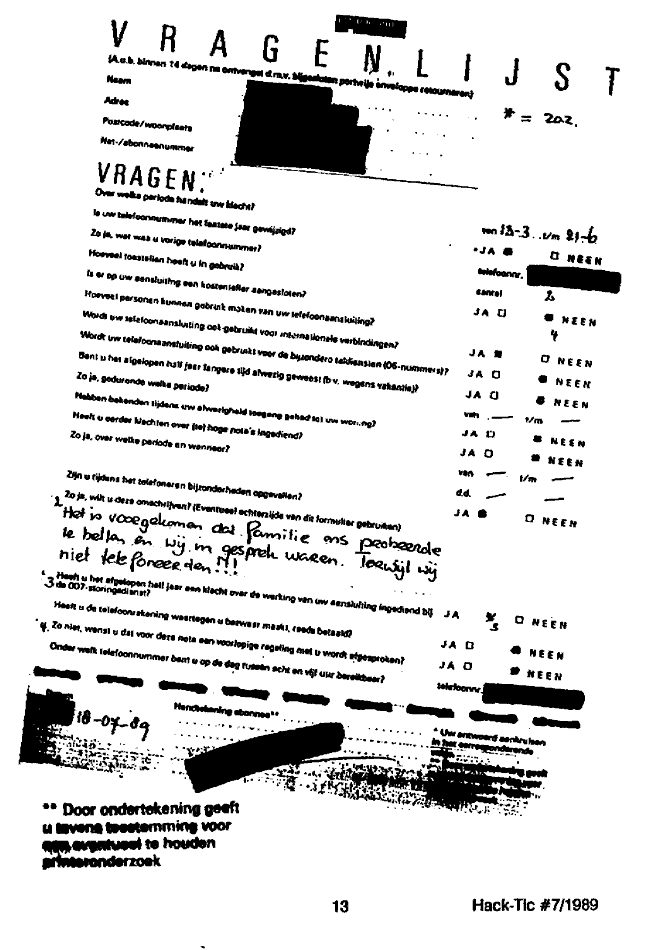 VRAGENLIJST
(A.u.b. binnen 14 dagen na ontvangst d.m.v. bijgesloten portvrije enveloppe retourneren)
Naam
Adres
Postcode/woonplaats
Net-/abonneenummer
* = 202.
VRAGEN:
Over welke periode handelt uw klacht?
van 13-3 t/m 21-6
Is uw telefoonnummer het laatste jaar gewijzigd?
* JA NEEN
Zo ja, wat was u vorige telefoonnummer?
telefoonnr.
Hoeveel toestellen heeft u in gebruik?
aantal 2
Is er op uw aansluiting een kostenteller aangesloten?
JA NEEN
Hoeveel personen kunnen gebruik maken van uw telefoonaansluiting?
4
Wordt uw telefoonaansluiting ook gebruikt voor internationale verbindingen?
JA NEEN
Wordt uw telefoonaansluiting ook gebruikt voor de bijzondere taldiensten (06-nummers)?
JA NEEN
Bent u het afgelopen half jaar langere tijd afwezig geweest (b.v. wegens vakantie)?
JA NEEN
Zo ja, gedurende welke periode?
van — t/m —
Hebben bekenden tijdens uw afwezigheid toegang gehad tot uw woning?
JA NEEN
Heeft u eerder klachten over (te) hoge nota's ingediend?
JA NEEN
Zo ja, over welke periode en wanneer?
van — t/m —
d.d. — —
Zijn u tijdens het telefoneren bijzonderheden opgevallen?
JA NEEN
2 Zo ja, wilt u deze omschrijven? (Eventueel achterzijde van dit formulier gebruiken)
Het is voorgekomen dat familie ons probeerde
te bellen en wij in gesprek waren. Terwijl wij
niet telefoneerden !!!
* 3 Heeft u het afgelopen half jaar een klacht over de werking van uw aansluiting ingediend bij
de 007-storingsdienst?
JA 3 NEEN
Heeft u de telefoonrekening waartegen u bezwaar maakt, reeds betaald?
JA NEEN
* 4. Zo niet, wenst u dat voor deze nota een voorlopige regeling met u wordt afgesproken?
JA NEEN
Onder welk telefoonnummer bent u op de dag tussen acht en vijf uur bereikbaar?
telefoonnr.
18-07-89
Handtekening abonnee**
* Uw antwoord aankruisen
in het corresponderende
** Door ondertekening geeft
u tevens toestemming voor
een eventueel te houden
printeronderzoek
13
Hack-Tic #7/1989